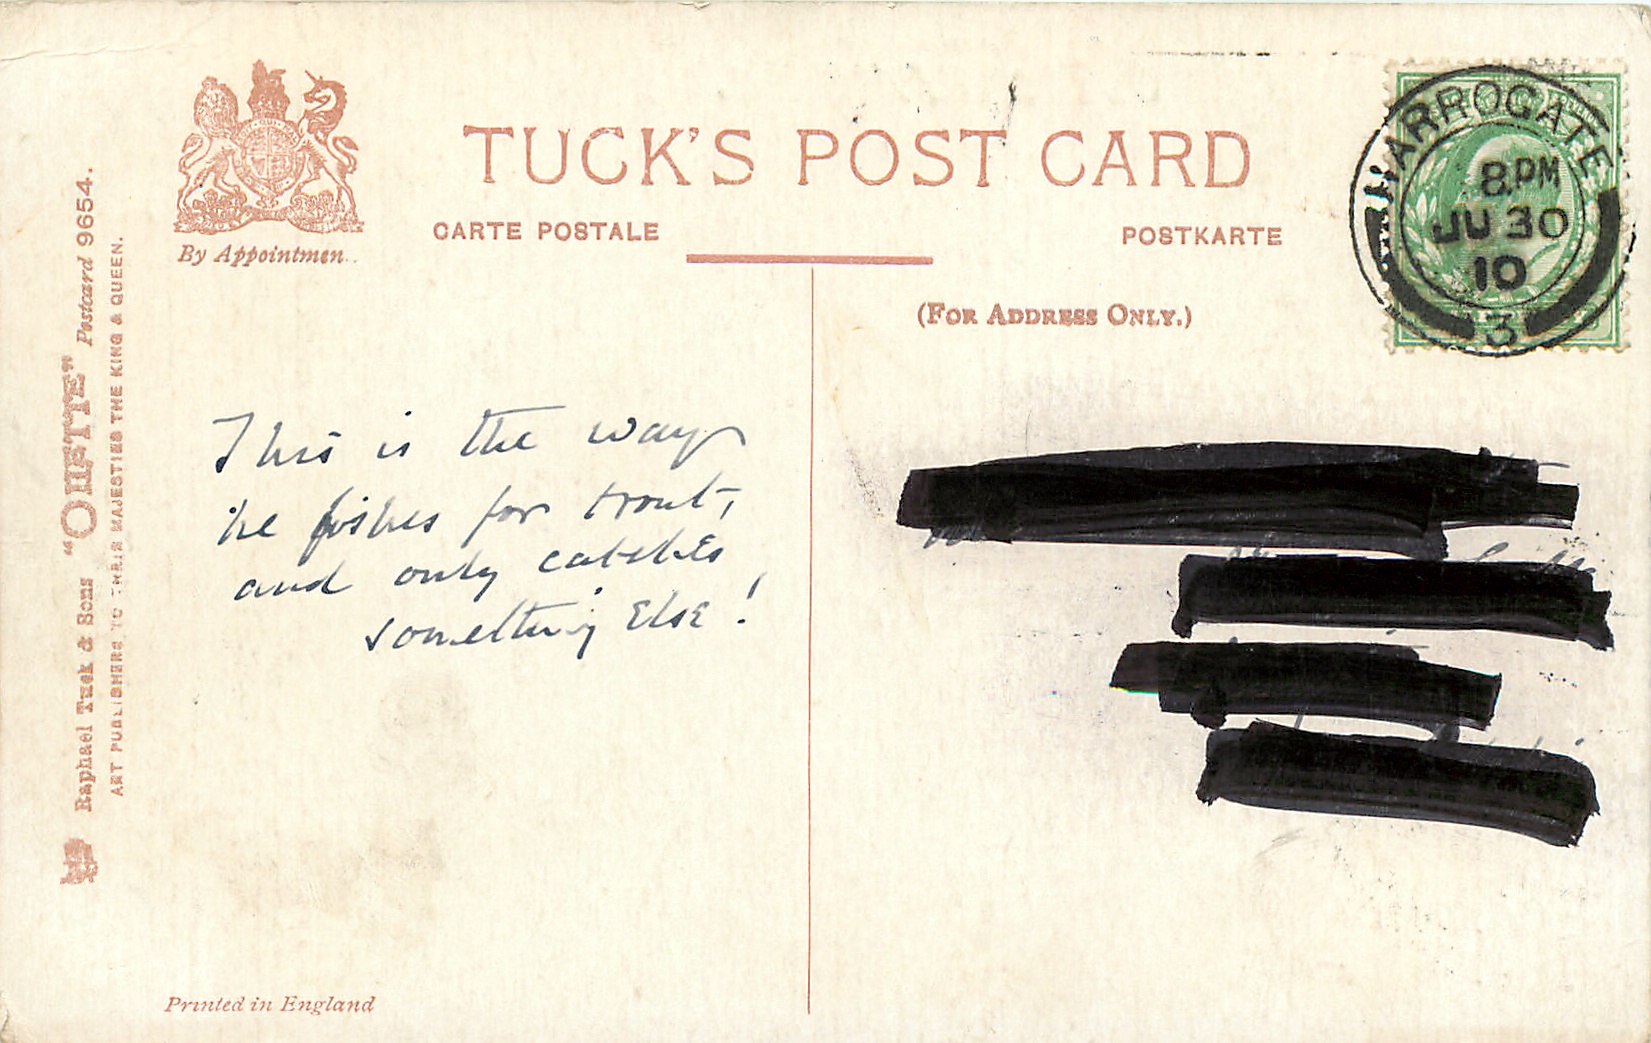 TUCK'S POST CARD
CARTE POSTALE
POSTKARTE
By Appointmen
(FOR ADDRESS ONLY.)
HARROGATE
8.PM
JU 30
10
3
Raphael Tuck & Sons "OILETTE" Postcard 9654.
ART PUBLISHERS TO THEIR MAJESTIES THE KING & QUEEN.
This is the way
he fishes for trout,
and only catches
something else!
Printed in England